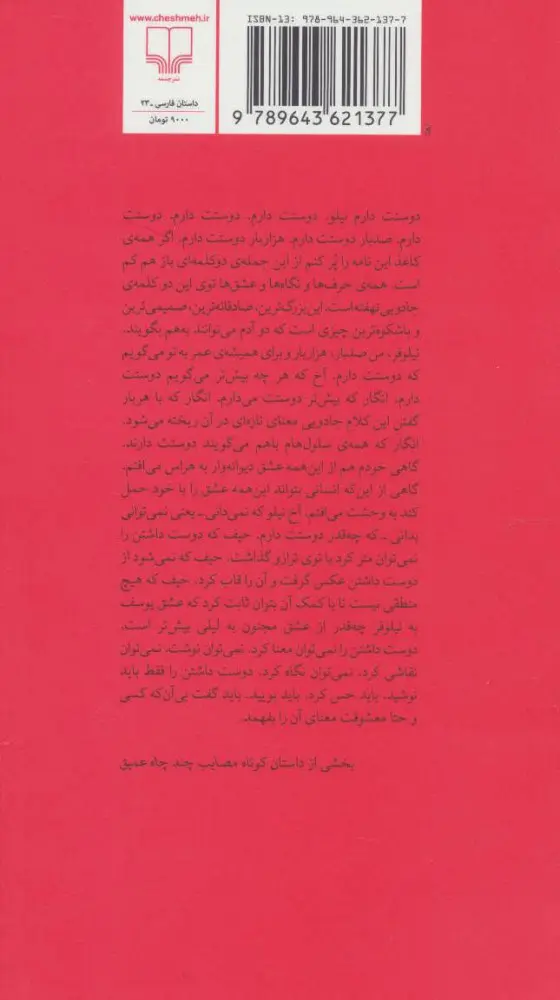 www.cheshmeh.ir
نشر چشمه
داستان فارسی ـ ۲۳
۹۰۰۰ تومان
ISBN-13: 978-964-362-137-7
9 789643 621377
دوستت دارم نیلو. دوستت دارم. دوستت دارم. دوستت
دارم. صدبار دوستت دارم. هزاربار دوستت دارم. اگر همه‌ی
کاغذ این نامه را پُر کنم از این جمله‌ی دوکلمه‌ای باز هم کم
است. همه‌ی حرف‌ها و نگاه‌ها و عشق‌ها توی این دو کلمه‌ی
جادویی نهفته است. این بزرگ‌ترین، صادقانه‌ترین، صمیمی‌ترین
و باشکوه‌ترین چیزی است که دو آدم می‌توانند به‌هم بگویند.
نیلوفر، من صدبار، هزاربار و برای همیشه‌ی عمر به تو می‌گویم
که دوستت دارم. آخ که هر چه بیش‌تر می‌گویم دوستت
دارم، انگار که بیش‌تر دوستت می‌دارم. انگار که با هربار
گفتن این کلام جادویی معنای تازه‌ای در آن ریخته می‌شود.
انگار که همه‌ی سلول‌هام باهم می‌گویند دوستت دارند.
گاهی خودم هم از این‌همه عشق دیوانه‌وار به هراس می‌افتم.
گاهی از این‌که انسانی بتواند این‌همه عشق را با خود حمل
کند به وحشت می‌افتم. آخ نیلو که نمی‌دانی ـ یعنی نمی‌توانی
بدانی ـ که چه‌قدر دوستت دارم. حیف که دوست داشتن را
نمی‌توان متر کرد یا توی ترازو گذاشت. حیف که نمی‌شود از
دوست داشتن عکسی گرفت و آن را قاب کرد. حیف که هیچ
منطقی نیست تا با کمک آن بتوان ثابت کرد که عشق یوسف
به نیلوفر چه‌قدر از عشق مجنون به لیلی بیش‌تر است.
دوست داشتن را نمی‌توان معنا کرد. نمی‌توان نوشت. نمی‌توان
نقاشی کرد. نمی‌توان نگاه کرد. دوست داشتن را فقط باید
نوشید. باید حس کرد. باید بویید. باید گفت بی‌آن‌که کسی
و حتا معشوقت معنای آن را بفهمد.
بخشی از داستان کوتاه مصایب چند چاه عمیق